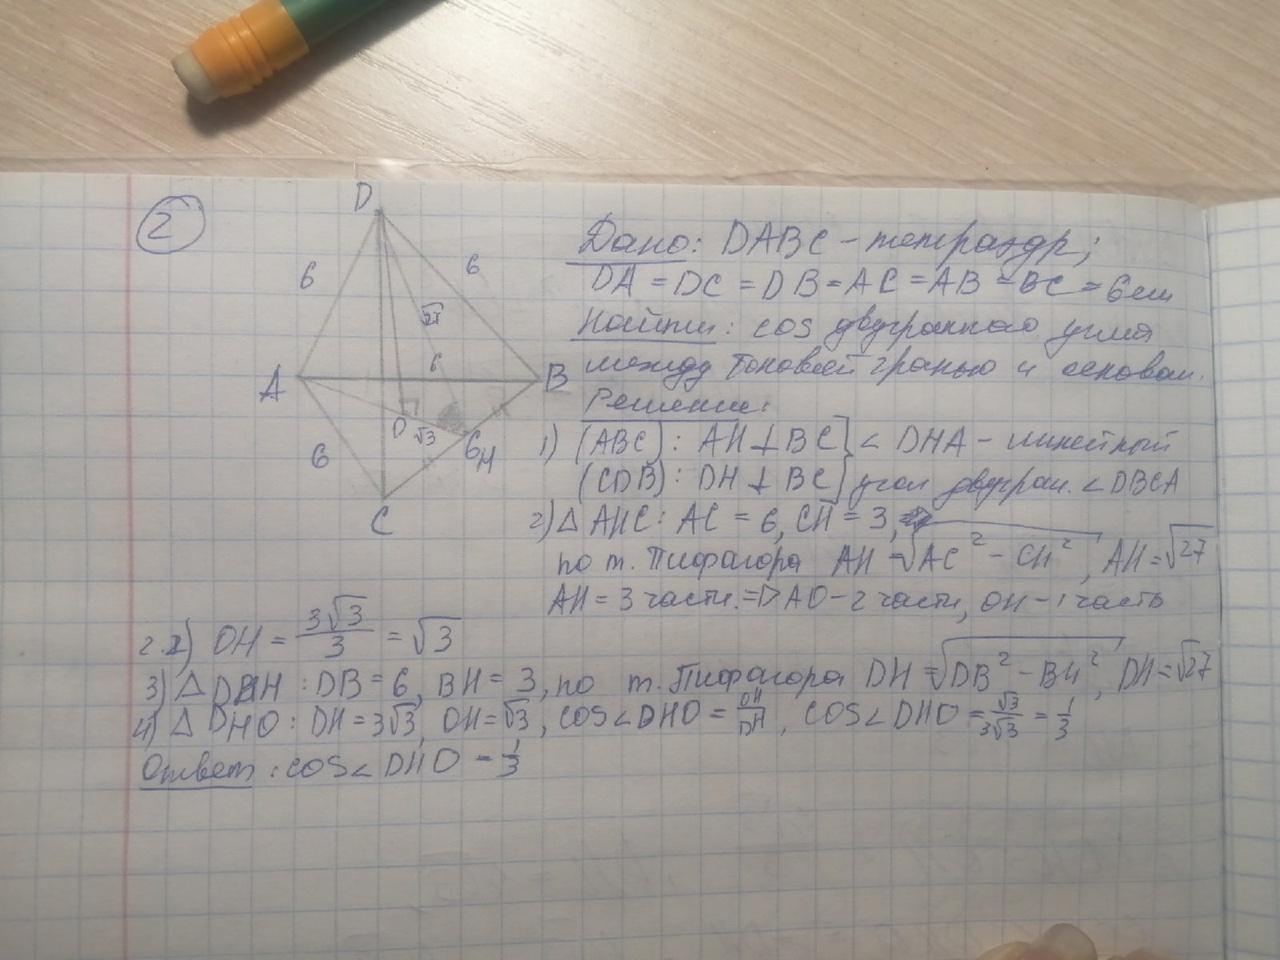 2
D
6
6
√27
6
A
B
O
√3
6
H
6
C
Дано: DABC - тетраэдр;
DA = DC = DB = AC = AB = BC = 6см
Найти: cos двугранного угла
между боковой гранью и основан.
Решение:
1) (ABC): AH ⊥ BC } ∠ DHA - линейный
(CDB): DH ⊥ BC } угол двугран. ∠ DBCA
2) △ AHC: AC = 6, CH = 3,
по т. Пифагора AH = √AC² - CH², AH = √27
AH = 3 части. => AO - 2 части, OH - 1 часть
2.2) OH = 3√3/3 = √3
3) △ DBH: DB = 6, BH = 3, по т. Пифагора DH = √DB² - BH², DH = √27
4) △ DHO: DH = 3√3, OH = √3, cos∠DHO = OH/DH, cos∠DHO = √3/3√3 = 1/3
Ответ: cos∠DHO = 1/3